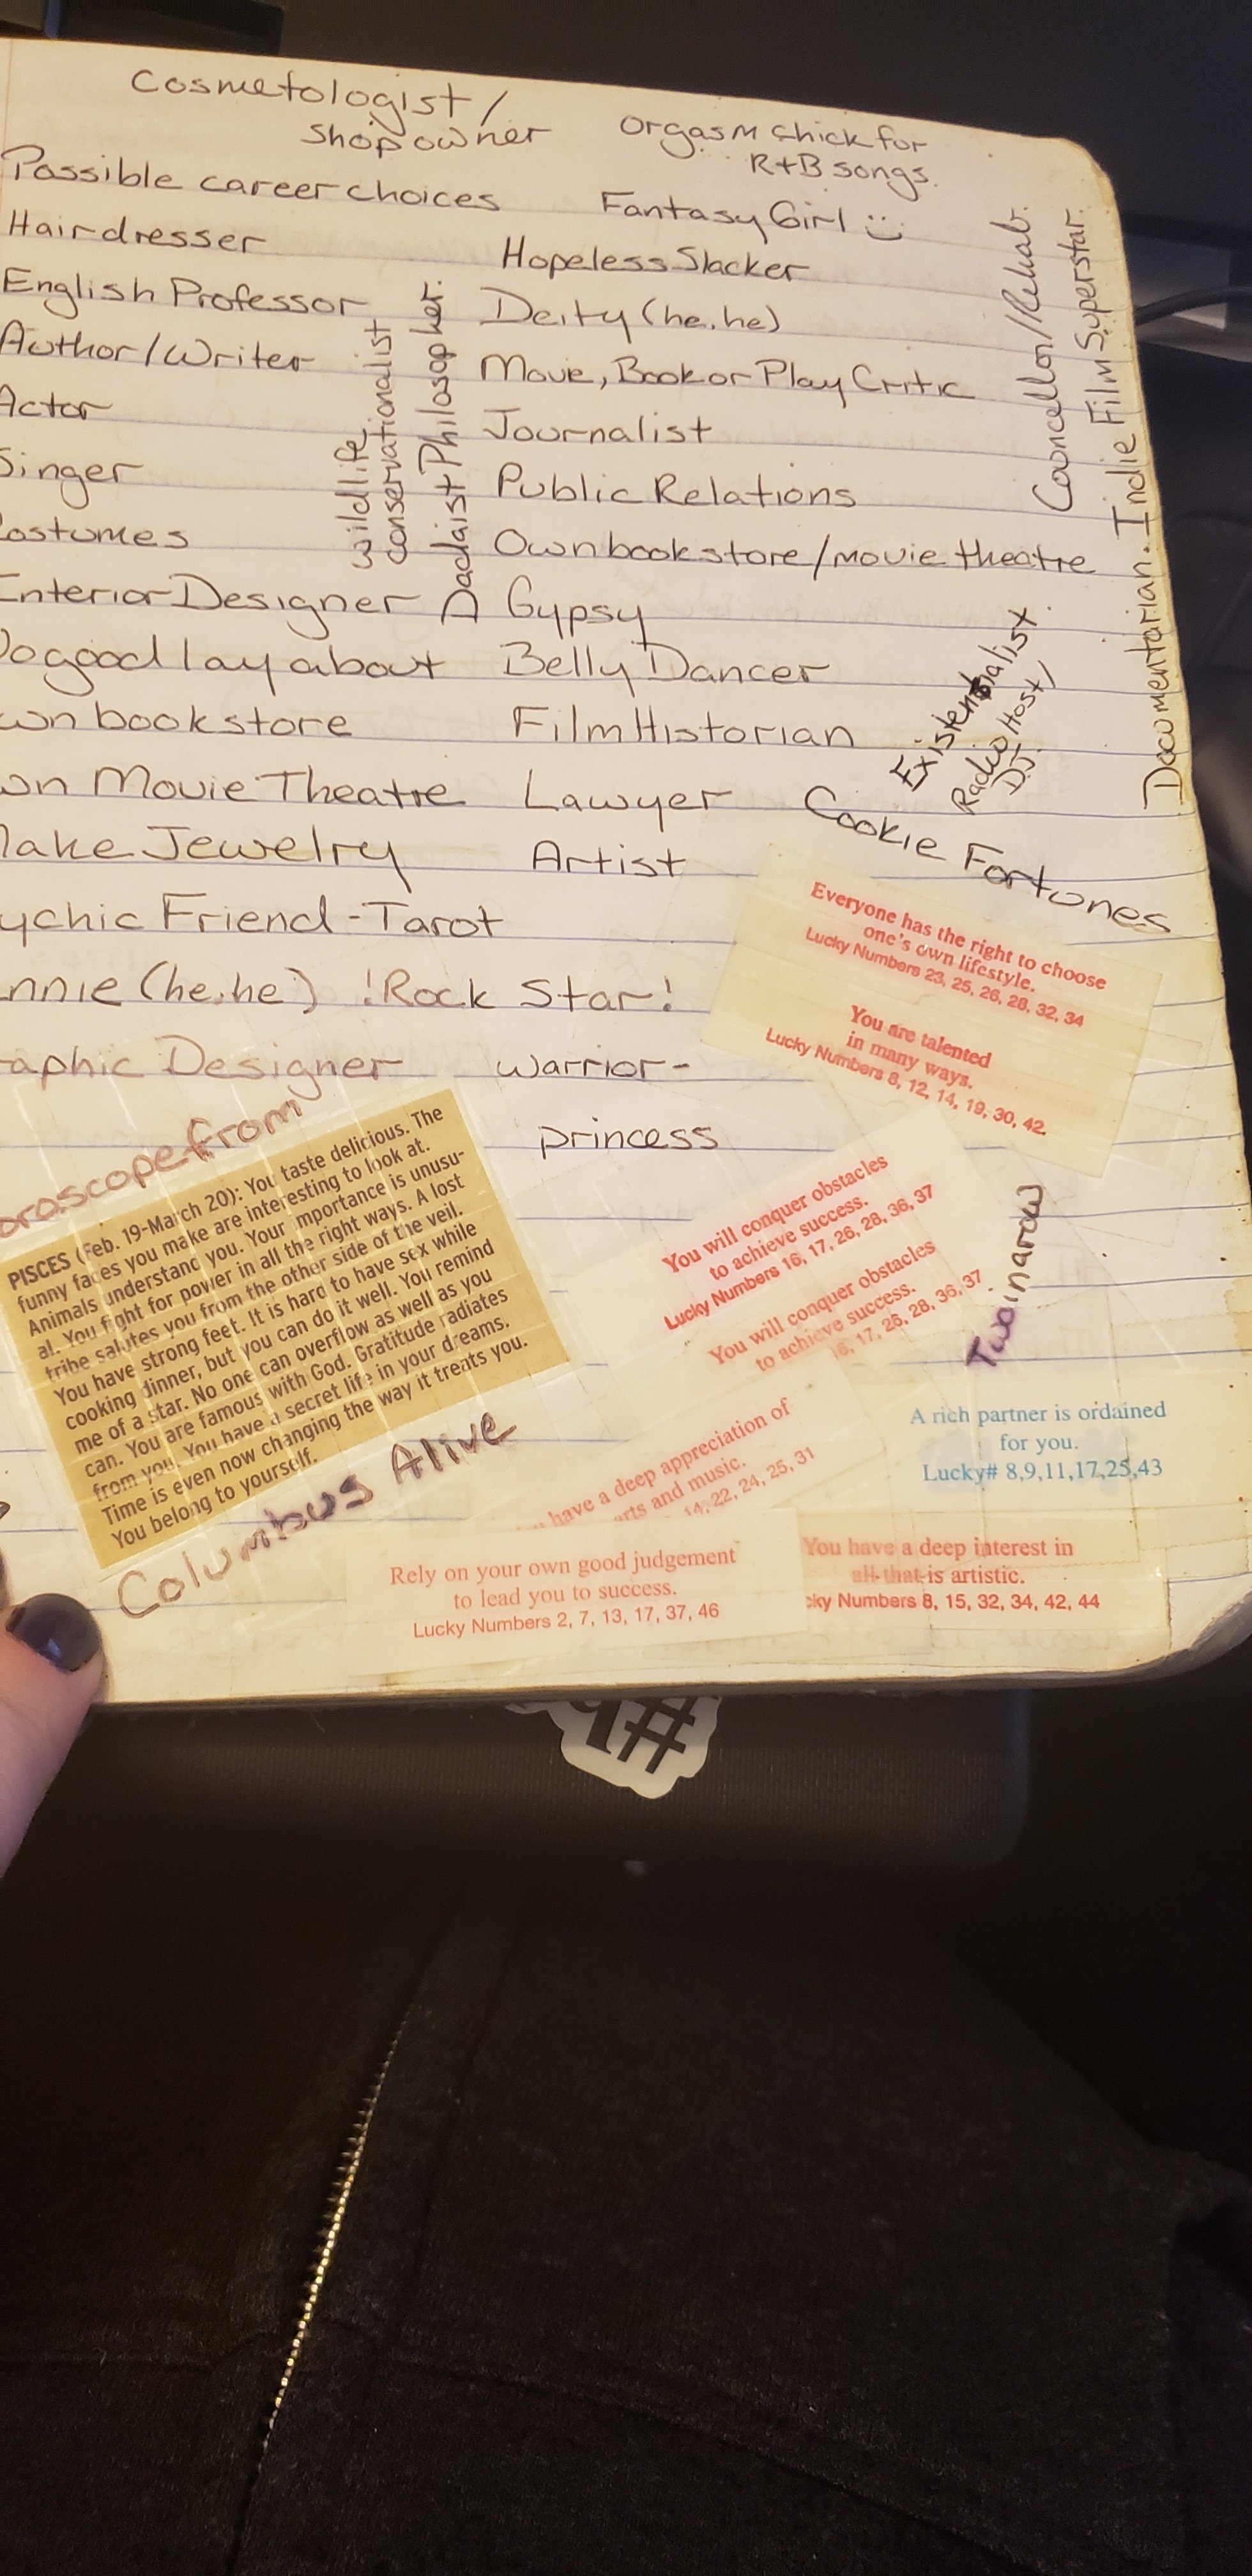 Cosmetologist/
Shop owner
Orgasm Chick for
R+B songs.
Possible career choices
Fantasy Girl :)
Hairdresser
Hopeless Slacker
English Professor
Deity (he.he)
Author/Writer
Movie, Book or Play Critic
Actor
Journalist
Singer
Public Relations
Costumes
Own book store/movie theatre
Interior Designer
A Gypsy
Do good lay about
Belly Dancer
own bookstore
Film Historian
own Movie Theatre
Lawyer
Make Jewelry
Artist
ychic Friend - Tarot
nnie (he.he)
!Rock Star!
raphic Designer
Warrior-
princess
wildlife
conservationalist
Dadaist Philosopher.
Councellor/Rehab.
Documentarian. Indie Film Superstar.
Existentialist
Radio Host/
DJ.
Cookie Fortunes
Everyone has the right to choose
one's own lifestyle.
Lucky Numbers 23, 25, 26, 28, 32, 34
You are talented
in many ways.
Lucky Numbers 8, 12, 14, 19, 30, 42.
oroscope from
PISCES (Feb. 19-March 20): You taste delicious. The
funny faces you make are interesting to look at.
Animals understand you. Your importance is unusu-
al. You fight for power in all the right ways. A lost
tribe salutes you from the other side of the veil.
You have strong feet. It is hard to have sex while
cooking dinner, but you can do it well. You remind
me of a star. No one can overflow as well as you
can. You are famous with God. Gratitude radiates
from you. You have a secret life in your dreams.
Time is even now changing the way it treats you.
You belong to yourself.
Columbus Alive
You will conquer obstacles
to achieve success.
Lucky Numbers 16, 17, 26, 28, 36, 37
You will conquer obstacles
to achieve success.
16, 17, 26, 28, 36, 37
Two in a row
have a deep appreciation of
arts and music.
14, 22, 24, 25, 31
A rich partner is ordained
for you.
Lucky# 8,9,11,17,25,43
Rely on your own good judgement
to lead you to success.
Lucky Numbers 2, 7, 13, 17, 37, 46
You have a deep interest in
all that is artistic.
cky Numbers 8, 15, 32, 34, 42, 44
#